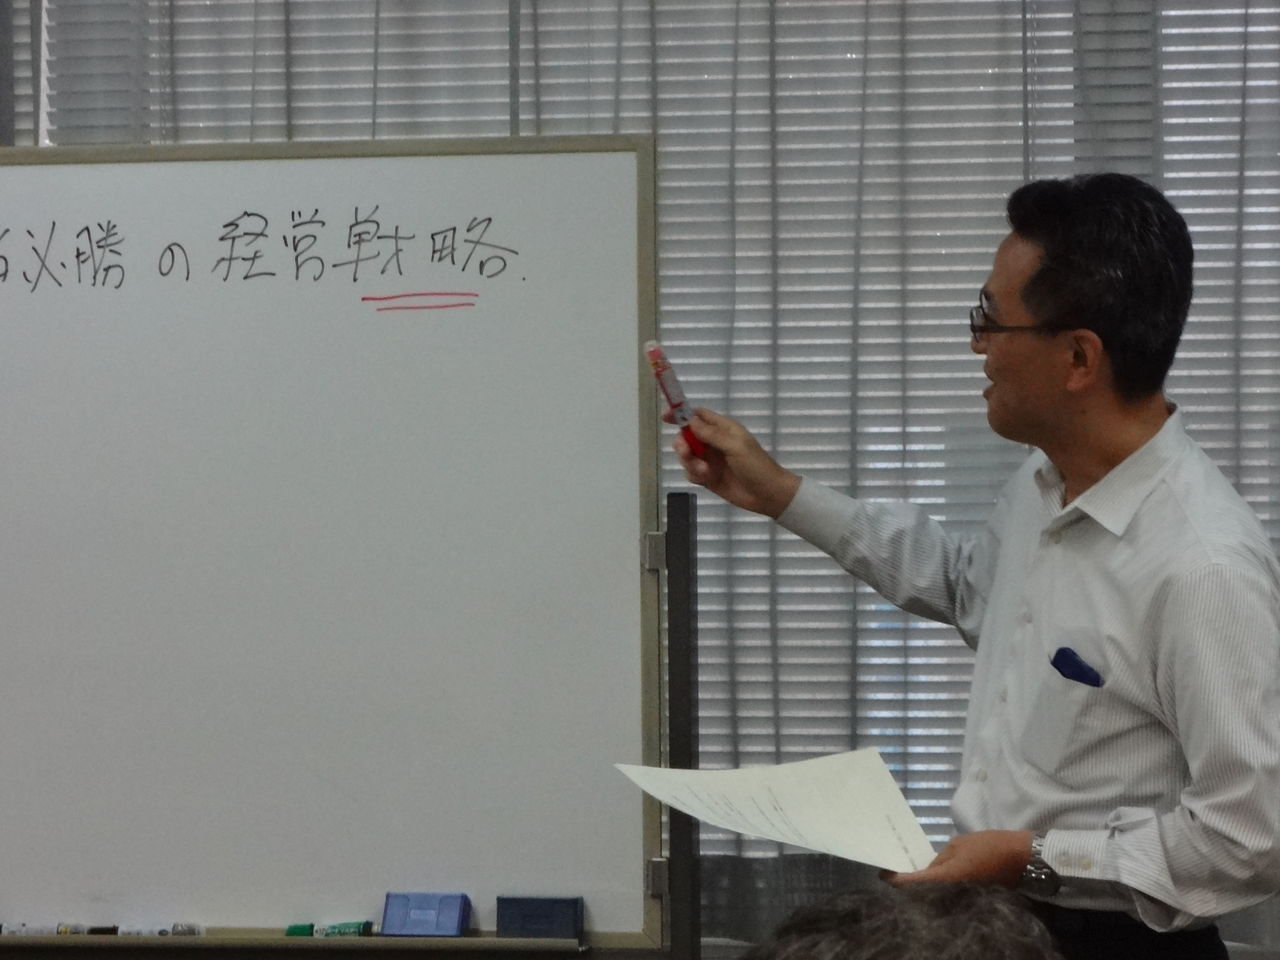 必勝の経営戦略.